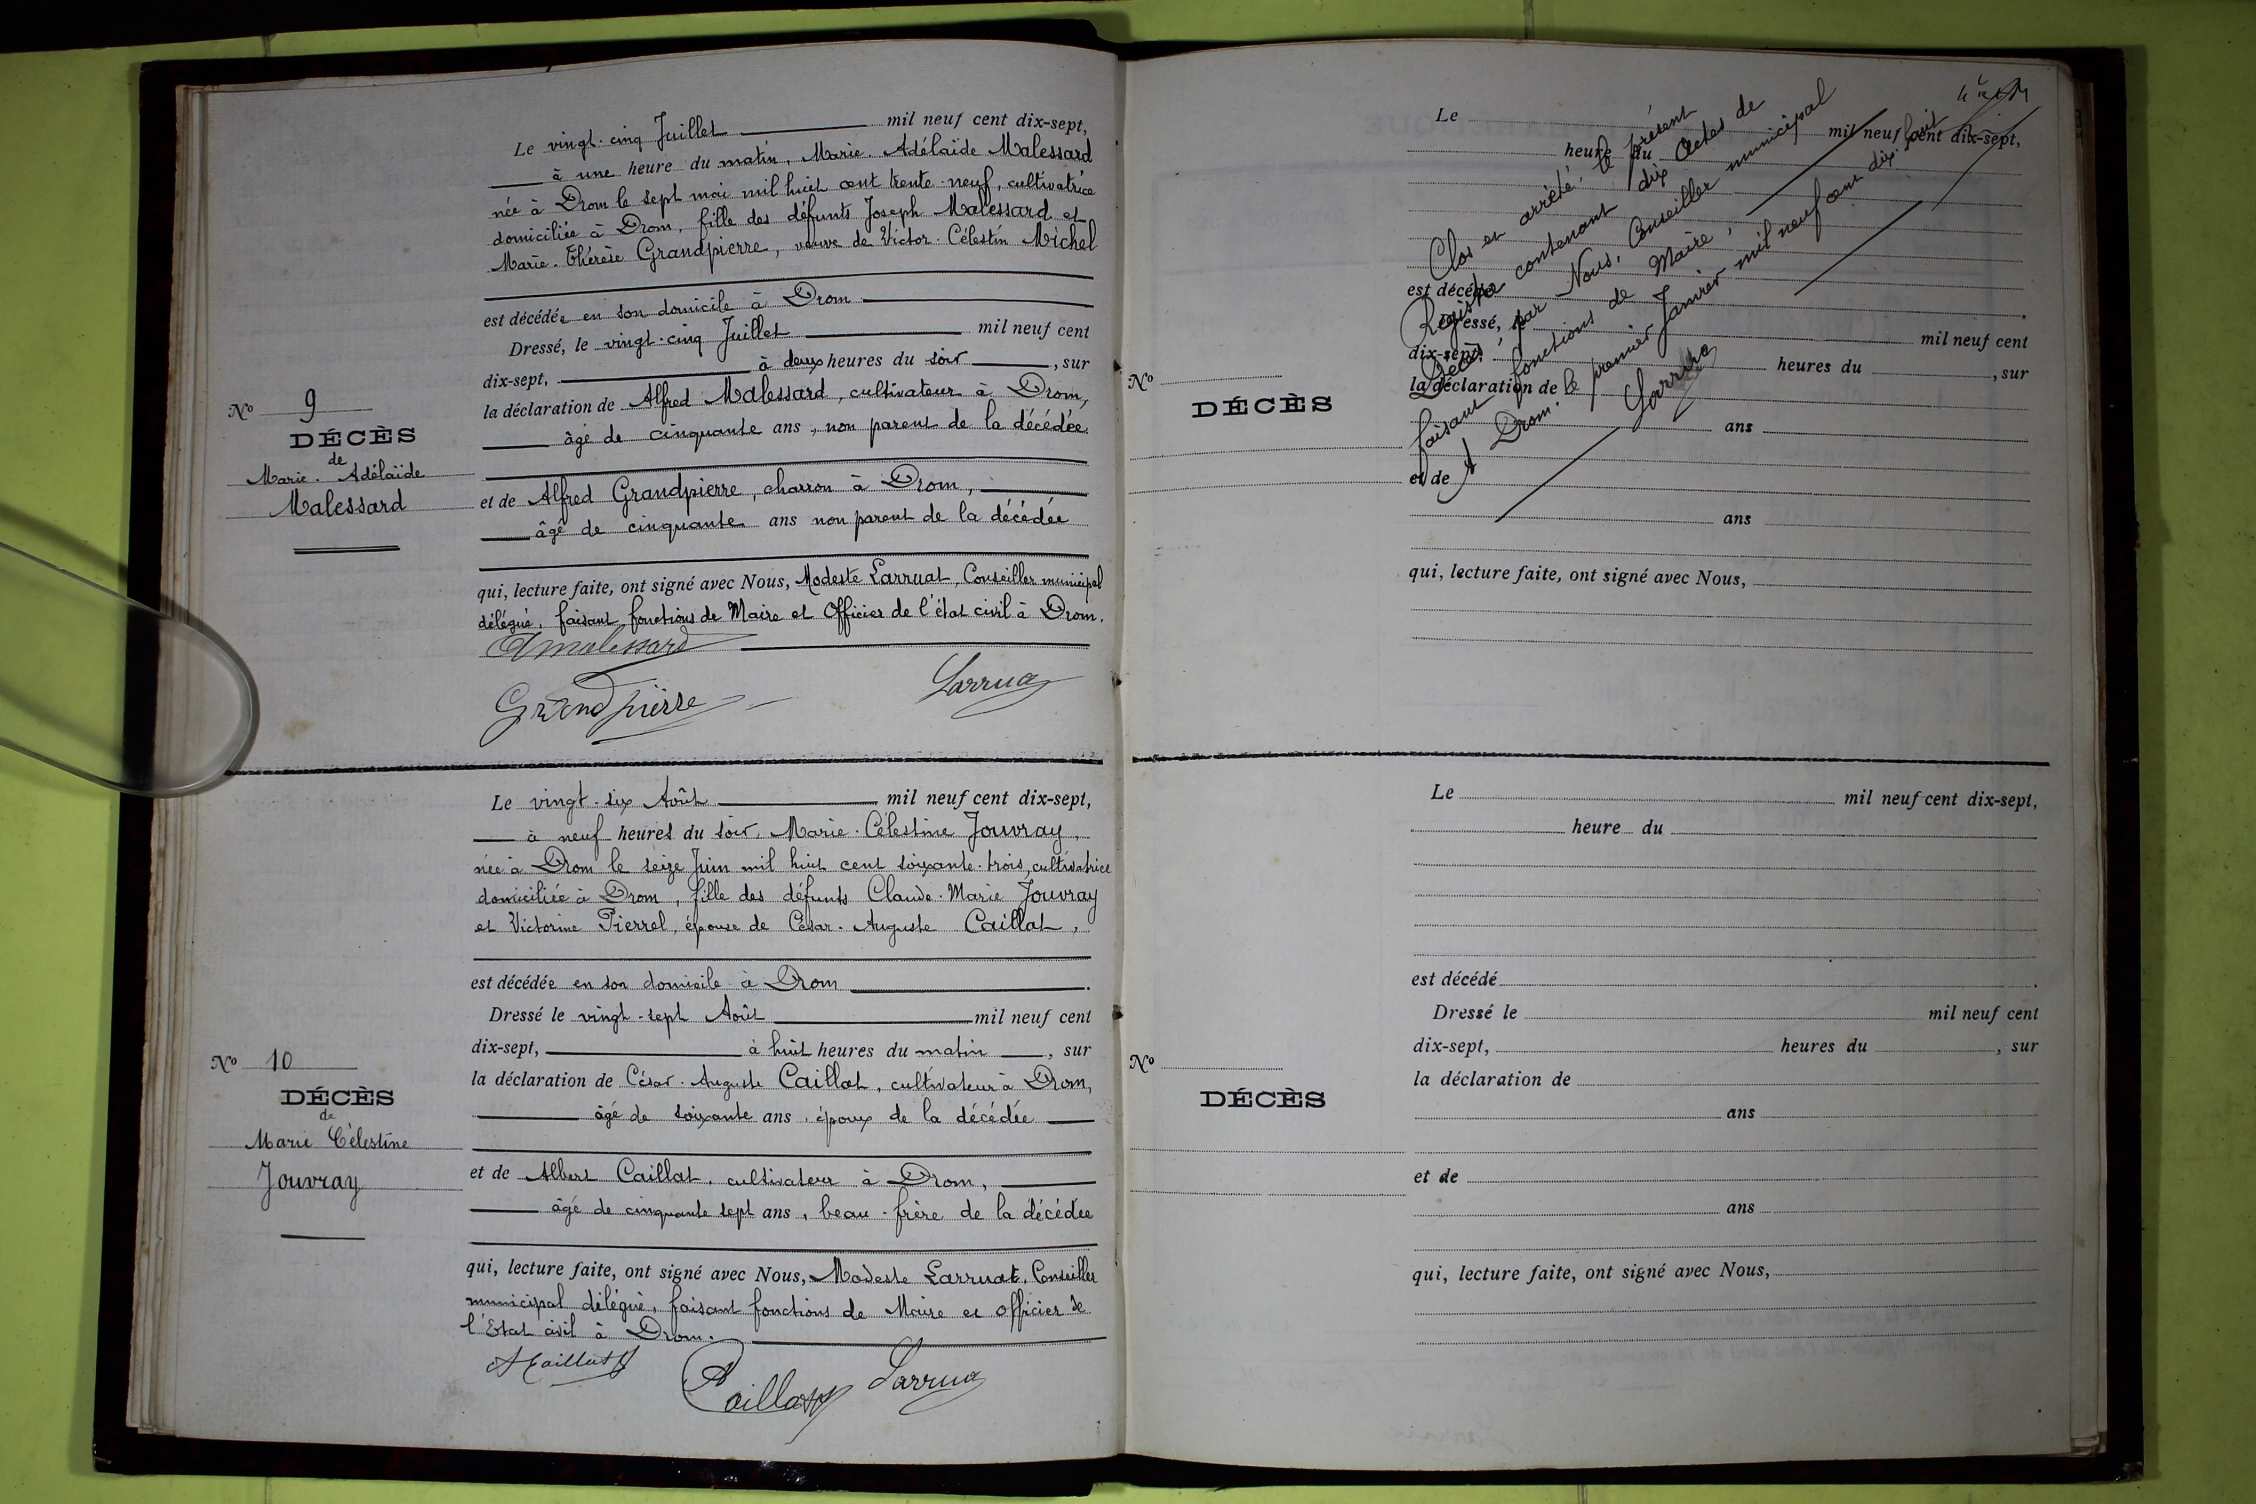 Le vingt-cinq Juillet mil neuf cent dix-sept,
à une heure du matin, Marie-Adélaïde Malessard
née à Drom le sept mai mil huit cent trente-neuf, cultivatrice
domiciliée à Drom, fille des défunts Joseph Malessard et
Marie-Thérèse Grandpierre, veuve de Victor-Célestin Michel
est décédée en son domicile à Drom
Dressé, le vingt-cinq Juillet mil neuf cent
dix-sept, à deux heures du soir, sur
la déclaration de Alfred Malessard, cultivateur à Drom,
âgé de cinquante ans, non parent de la décédée.
et de Alfred Grandpierre, charron à Drom,
âgé de cinquante ans non parent de la décédée
qui, lecture faite, ont signé avec Nous, Modeste Larruat, Conseiller municipal
délégué, faisant fonctions de Maire et Officier de l'état civil à Drom.
AMalessard
Grandpierre
Larrua
No 9
DÉCÈS
de
Marie-Adélaïde
Malessard
Le vingt-six Août mil neuf cent dix-sept,
à neuf heures du soir, Marie-Célestine Jouvray,
née à Drom le seize Juin mil huit cent soixante-trois, cultivatrice
domiciliée à Drom, fille des défunts Claude-Marie Jouvray
et Victorine Pierrel, épouse de César-Auguste Caillat,
est décédée en son domicile à Drom.
Dressé le vingt-sept Août mil neuf cent
dix-sept, à huit heures du matin, sur
la déclaration de César-Auguste Caillat, cultivateur à Drom,
âgé de soixante ans, époux de la décédée
et de Albert Caillat, cultivateur à Drom,
âgé de cinquante sept ans, beau-frère de la décédée
qui, lecture faite, ont signé avec Nous, Modeste Larruat, Conseiller
municipal délégué, faisant fonctions de Maire et officier de
l'Etat civil à Drom.
ACaillat
Caillat
Larrua
No 10
DÉCÈS
de
Marie Célestine
Jouvray
Le mil neuf cent dix-sept,
heure du
est décédé
Dressé, le mil neuf cent
dix-sept, heures du , sur
la déclaration de
ans
et de
ans
qui, lecture faite, ont signé avec Nous,
No
DÉCÈS
Clos et arrêté, le présent
Registre contenant dix Actes de
Décès, par Nous, Conseiller municipal
faisant fonctions de Maire,
A Drom, le premier Janvier mil neuf cent dix-huit
Larrua
Le mil neuf cent dix-sept,
heure du
est décédé
Dressé le mil neuf cent
dix-sept, heures du , sur
la déclaration de
ans
et de
ans
qui, lecture faite, ont signé avec Nous,
No
DÉCÈS